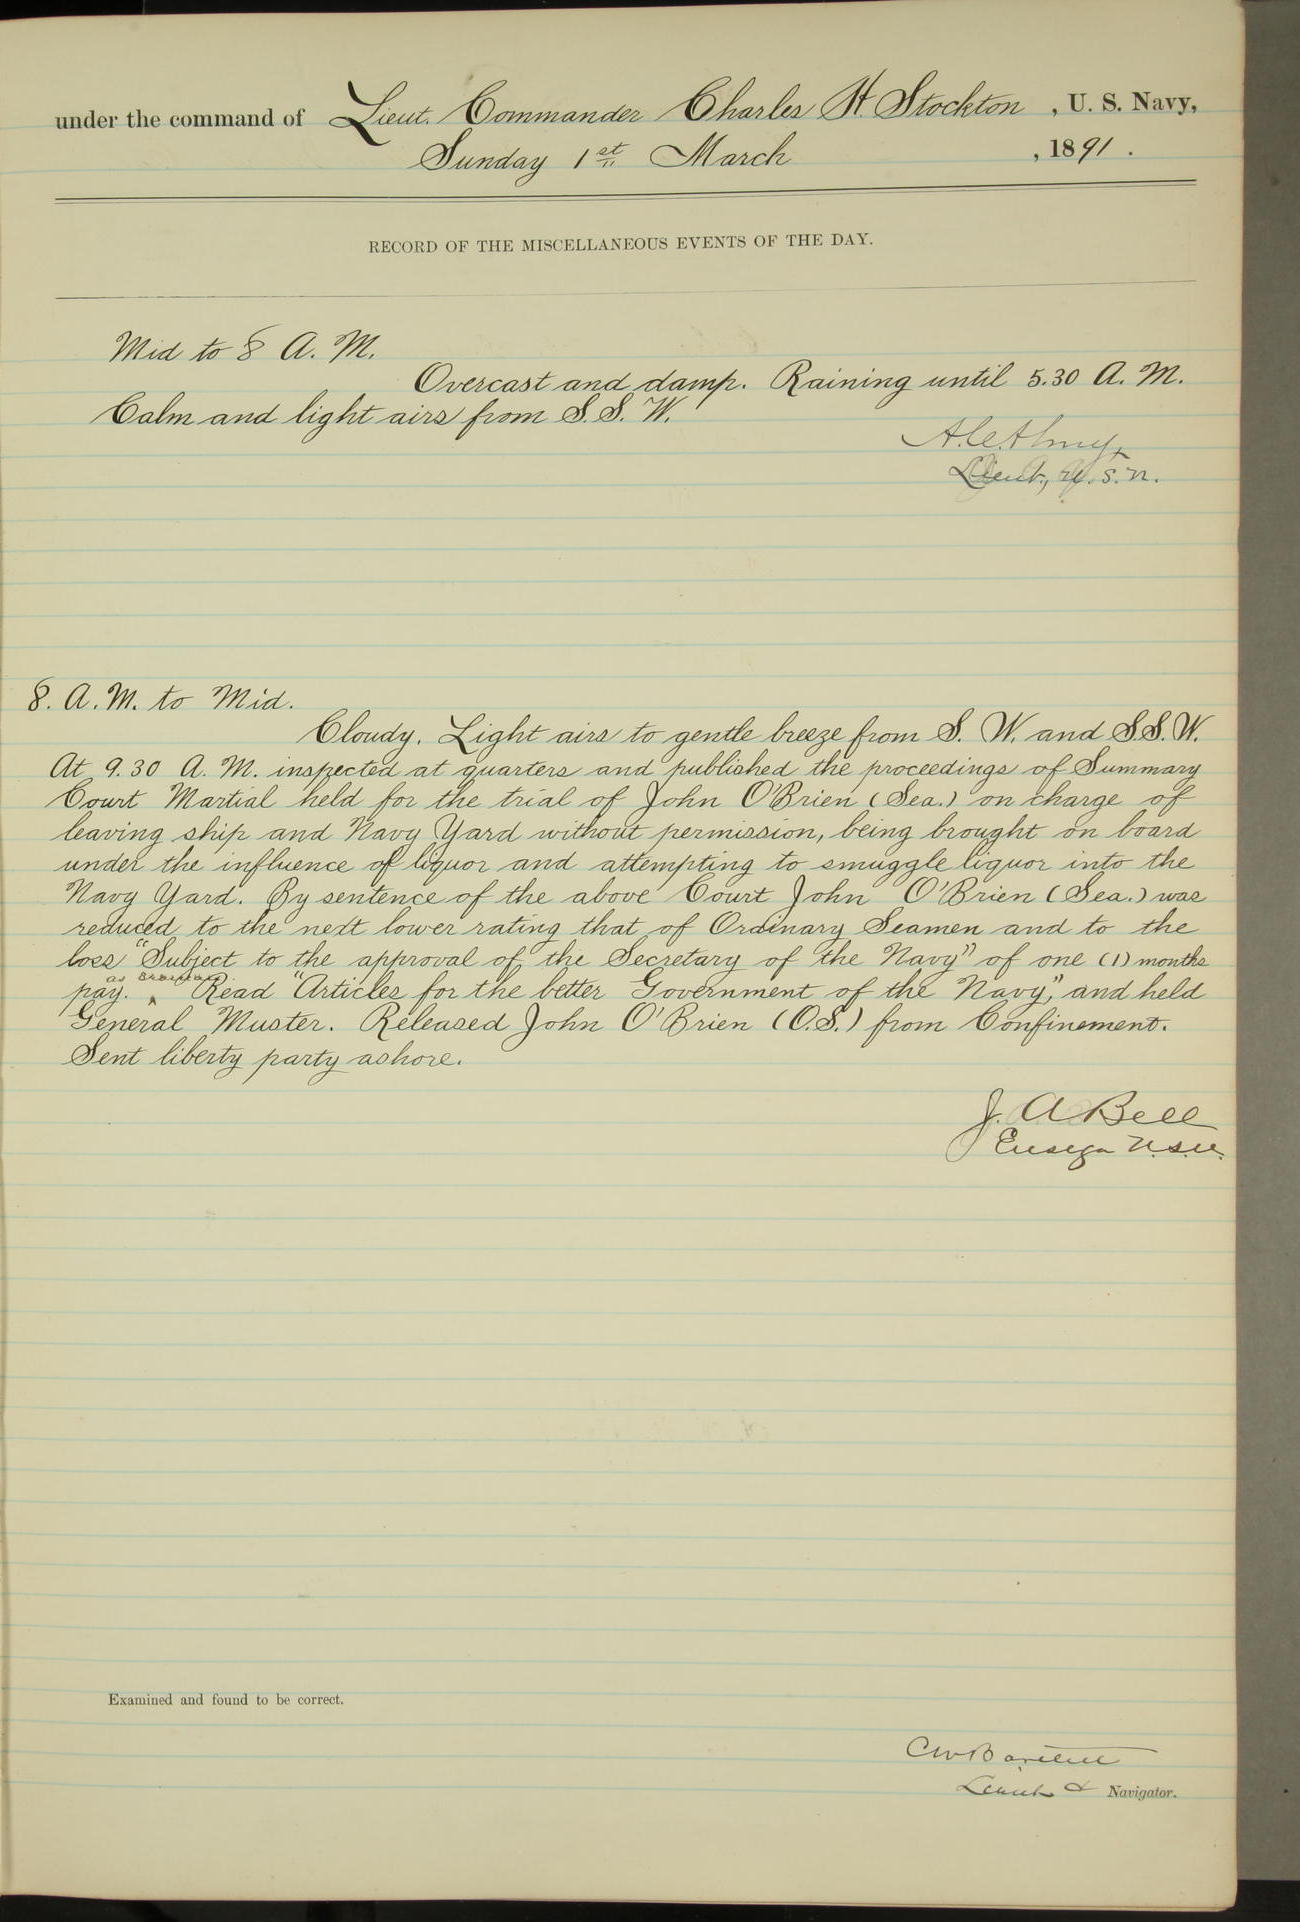 under the command of Lieut. Commander Charles H. Stockton, U. S. Navy,
Sunday 1st March, 1891.
RECORD OF THE MISCELLANEOUS EVENTS OF THE DAY.
Mid to 8 A. M.
Overcast and damp. Raining until 5.30 A. M.
Calm and light airs from S. S. W.
A.C. Almy,
Lieut., U.S.N.
8. A. M. to Mid.
Cloudy. Light airs to gentle breeze from S. W. and S.S.W.
At 9.30 A. M. inspected at quarters and published the proceedings of Summary
Court Martial held for the trial of John O'Brien (Sea.) on charge of
leaving ship and Navy Yard without permission, being brought on board
under the influence of liquor and attempting to smuggle liquor into the
Navy Yard. By sentence of the above Court John O'Brien (Sea.) was
reduced to the next lower rating that of Ordinary Seamen and to the
loss "Subject to the approval of the Secretary of the Navy" of one (1) months
pay. Read "Articles for the better Government of the Navy", and held
General Muster. Released John O'Brien (O.S.) from Confinement.
Sent liberty party ashore.
J. A Bell
Ensign U.S.N.
Examined and found to be correct.
C W Bartlett
Lieut & Navigator.